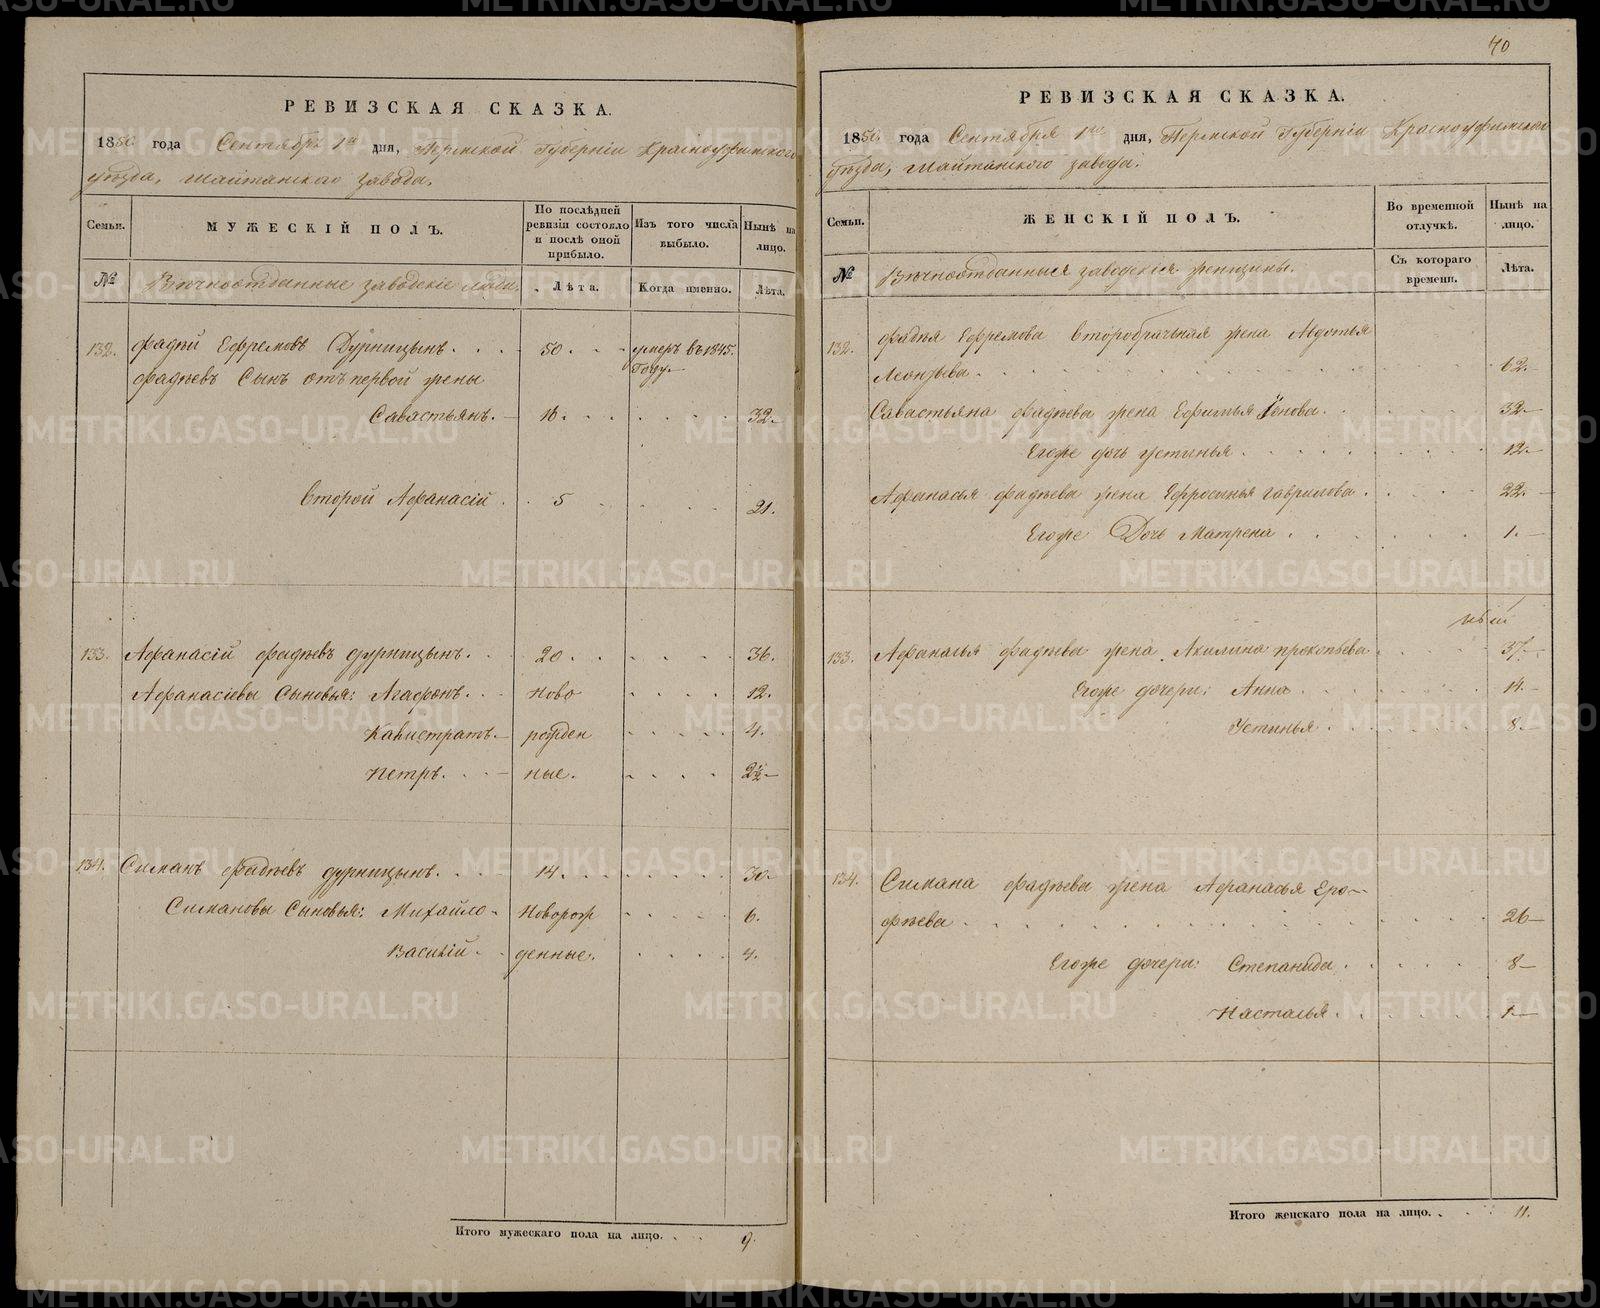 РЕВИЗСКАЯ СКАЗКА.
1850 года Сентября 1го дня, Пермской Губерніи Красноуфимского
уѣзда, Шайтанского завода.
Семьи. МУЖЕСКІЙ ПОЛЪ. По послѣдней ревизіи состояло и послѣ оной прибыло. Изъ того числа выбыло. Нынѣ на лицо.
№ Вѣчноотданные заводскіе люди. Лѣта. Когда именно. Лѣта.
132. Фадѣй Ефремовъ Дурницынъ. 50. умеръ въ 1845.
Году.
Фадѣевъ Сынъ отъ первой жены
Савастьянъ. 16. 32.
второй Афанасій 5 21.
133. Афанасій Фадѣевъ Дурницынъ. 20. 36.
Афанасіевы Сыновья: Агафонъ. Ново 12.
Калистратъ. рожден 4.
Петръ. ные. 2½
134. Симанъ Фадѣевъ Дурницынъ. 14. 30.
Симановы Сыновья: Михайло Новорож 6.
Василій денные. 4.
Итого мужескаго пола на лицо. 9.
70
РЕВИЗСКАЯ СКАЗКА.
1850 года Сентября 1го дня, Пермской Губерніи Красноуфимского
уѣзда, Шайтанского завода.
Семьи. ЖЕНСКІЙ ПОЛЪ. Во временной отлучкѣ. Нынѣ на лицо.
№ Вѣчноотданныя заводскія женщины. Съ котораго времени. Лѣта.
132. Фадѣя Ефремова второбрачная жена Авдотья
Леонтьева. 62.
Савастьяна Фадѣева жена Ефимья Іонова. 32.
Егоже дочь Устинья 12.
Афанасья Фадѣева жена Ефросинья Гаврилова. 22.
Егоже Дочь Матрена 1.
133. Афанасья Фадѣева жена Акилина Прокопьева 37.
Егоже дочери: Анна 14.
Устинья 8.
134. Симана Фадѣева жена Афанасья Еро-
фѣева 26
Егоже дочери: Степанида 8
Насталья 1.
Итого женскаго пола на лицо. 11.
METRIKI.GASO-URAL.RU